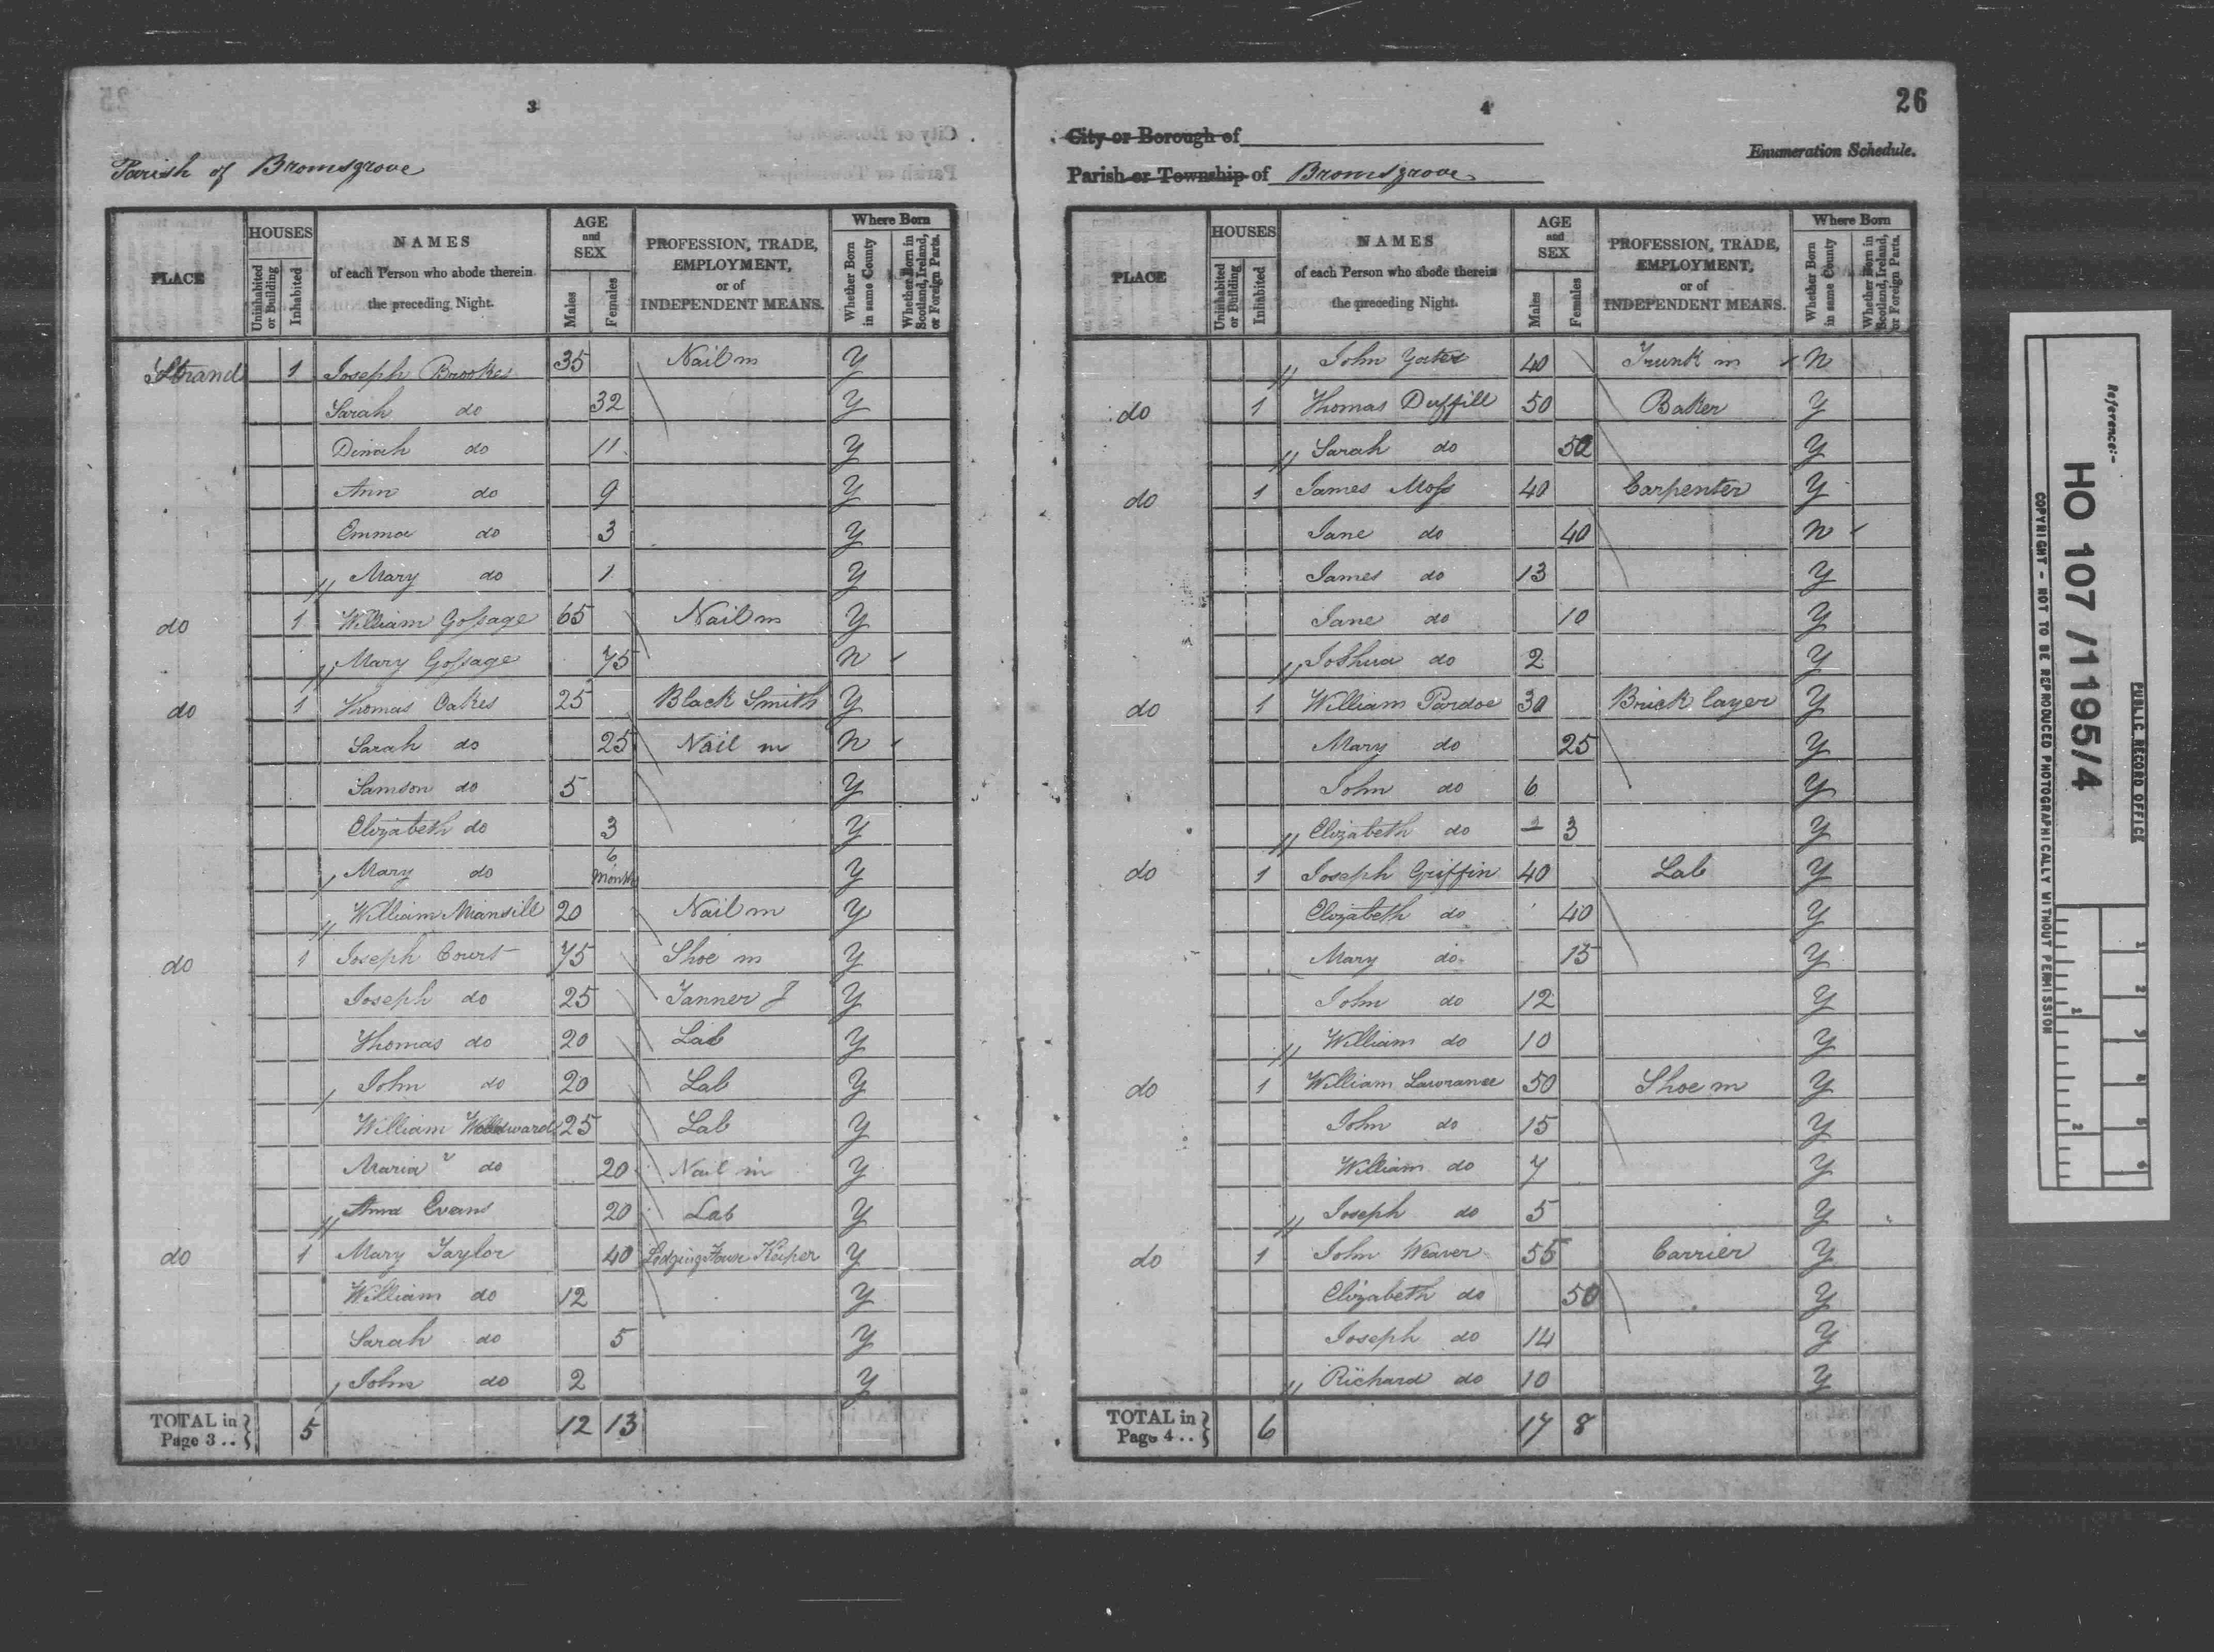 3
Parish of Bromsgrove
PLACE
HOUSES
Uninhabited or Building
Inhabited
NAMES
of each Person who abode therein
the preceding Night.
AGE
and
SEX
Males
Females
PROFESSION, TRADE,
EMPLOYMENT,
or of
INDEPENDENT MEANS.
Where Born
Whether Born in same County
Whether Born in Scotland, Ireland, or Foreign Parts.
Strand 1 Joseph Brookes 35 Nail m Y
Sarah do 32 Y
Dinah do 11 Y
Ann do 9 Y
Emma do 3 Y
// Mary do 1 Y
do 1 William Gossage 65 Nail m Y
// Mary Gossage 75 N
do 1 Thomas Oakes 25 Black Smith Y
Sarah do 25 Nail m N
Samson do 5 Y
Elizabeth do 3 Y
/ Mary do 6 Months Y
// William Mansill 20 Nail m Y
do 1 Joseph Court 75 Shoe m Y
Joseph do 25 Tanner J Y
Thomas do 20 Lab Y
/ John do 20 Lab Y
William Woodward 25 Lab Y
Maria do 20 Nail m Y
// Evans 20 Lab Y
do 1 Mary Taylor 40 Lodging House Keeper Y
William do 12 Y
Sarah do 5 Y
/ John do 2 Y
TOTAL in Page 3 .. } 5 12 13
4
26
City or Borough of
Enumeration Schedule.
Parish or Township of Bromsgrove
PLACE
HOUSES
Uninhabited or Building
Inhabited
NAMES
of each Person who abode therein
the preceding Night.
AGE
and
SEX
Males
Females
PROFESSION, TRADE,
EMPLOYMENT,
or of
INDEPENDENT MEANS.
Where Born
Whether Born in same County
Whether Born in Scotland, Ireland, or Foreign Parts.
// John Yates 40 Trunk m N
do 1 Thomas Duffill 50 Baker Y
// Sarah do 50 Y
do 1 James Moss 40 Carpenter Y
Jane do 40 N
James do 13 Y
Jane do 10 Y
// Joshua do 2 Y
do 1 William Pardoe 30 Brick layer Y
Mary do 25 Y
John do 6 Y
// Elizabeth do 3 Y
do 1 Joseph Griffin 40 Lab Y
Elizabeth do 40 Y
Mary do 15 Y
John do 12 Y
// William do 10 Y
do 1 William Lawrance 50 Shoe m Y
John do 15 Y
William do 7 Y
// Joseph do 5 Y
do 1 John Weaver 55 Carrier Y
Elizabeth do 50 Y
Joseph do 14 Y
// Richard do 10 Y
TOTAL in Page 4 .. } 6 17 8
Reference:-
HO 107/1195/4
PUBLIC RECORD OFFICE
COPYRIGHT - NOT TO BE REPRODUCED PHOTOGRAPHICALLY WITHOUT PERMISSION